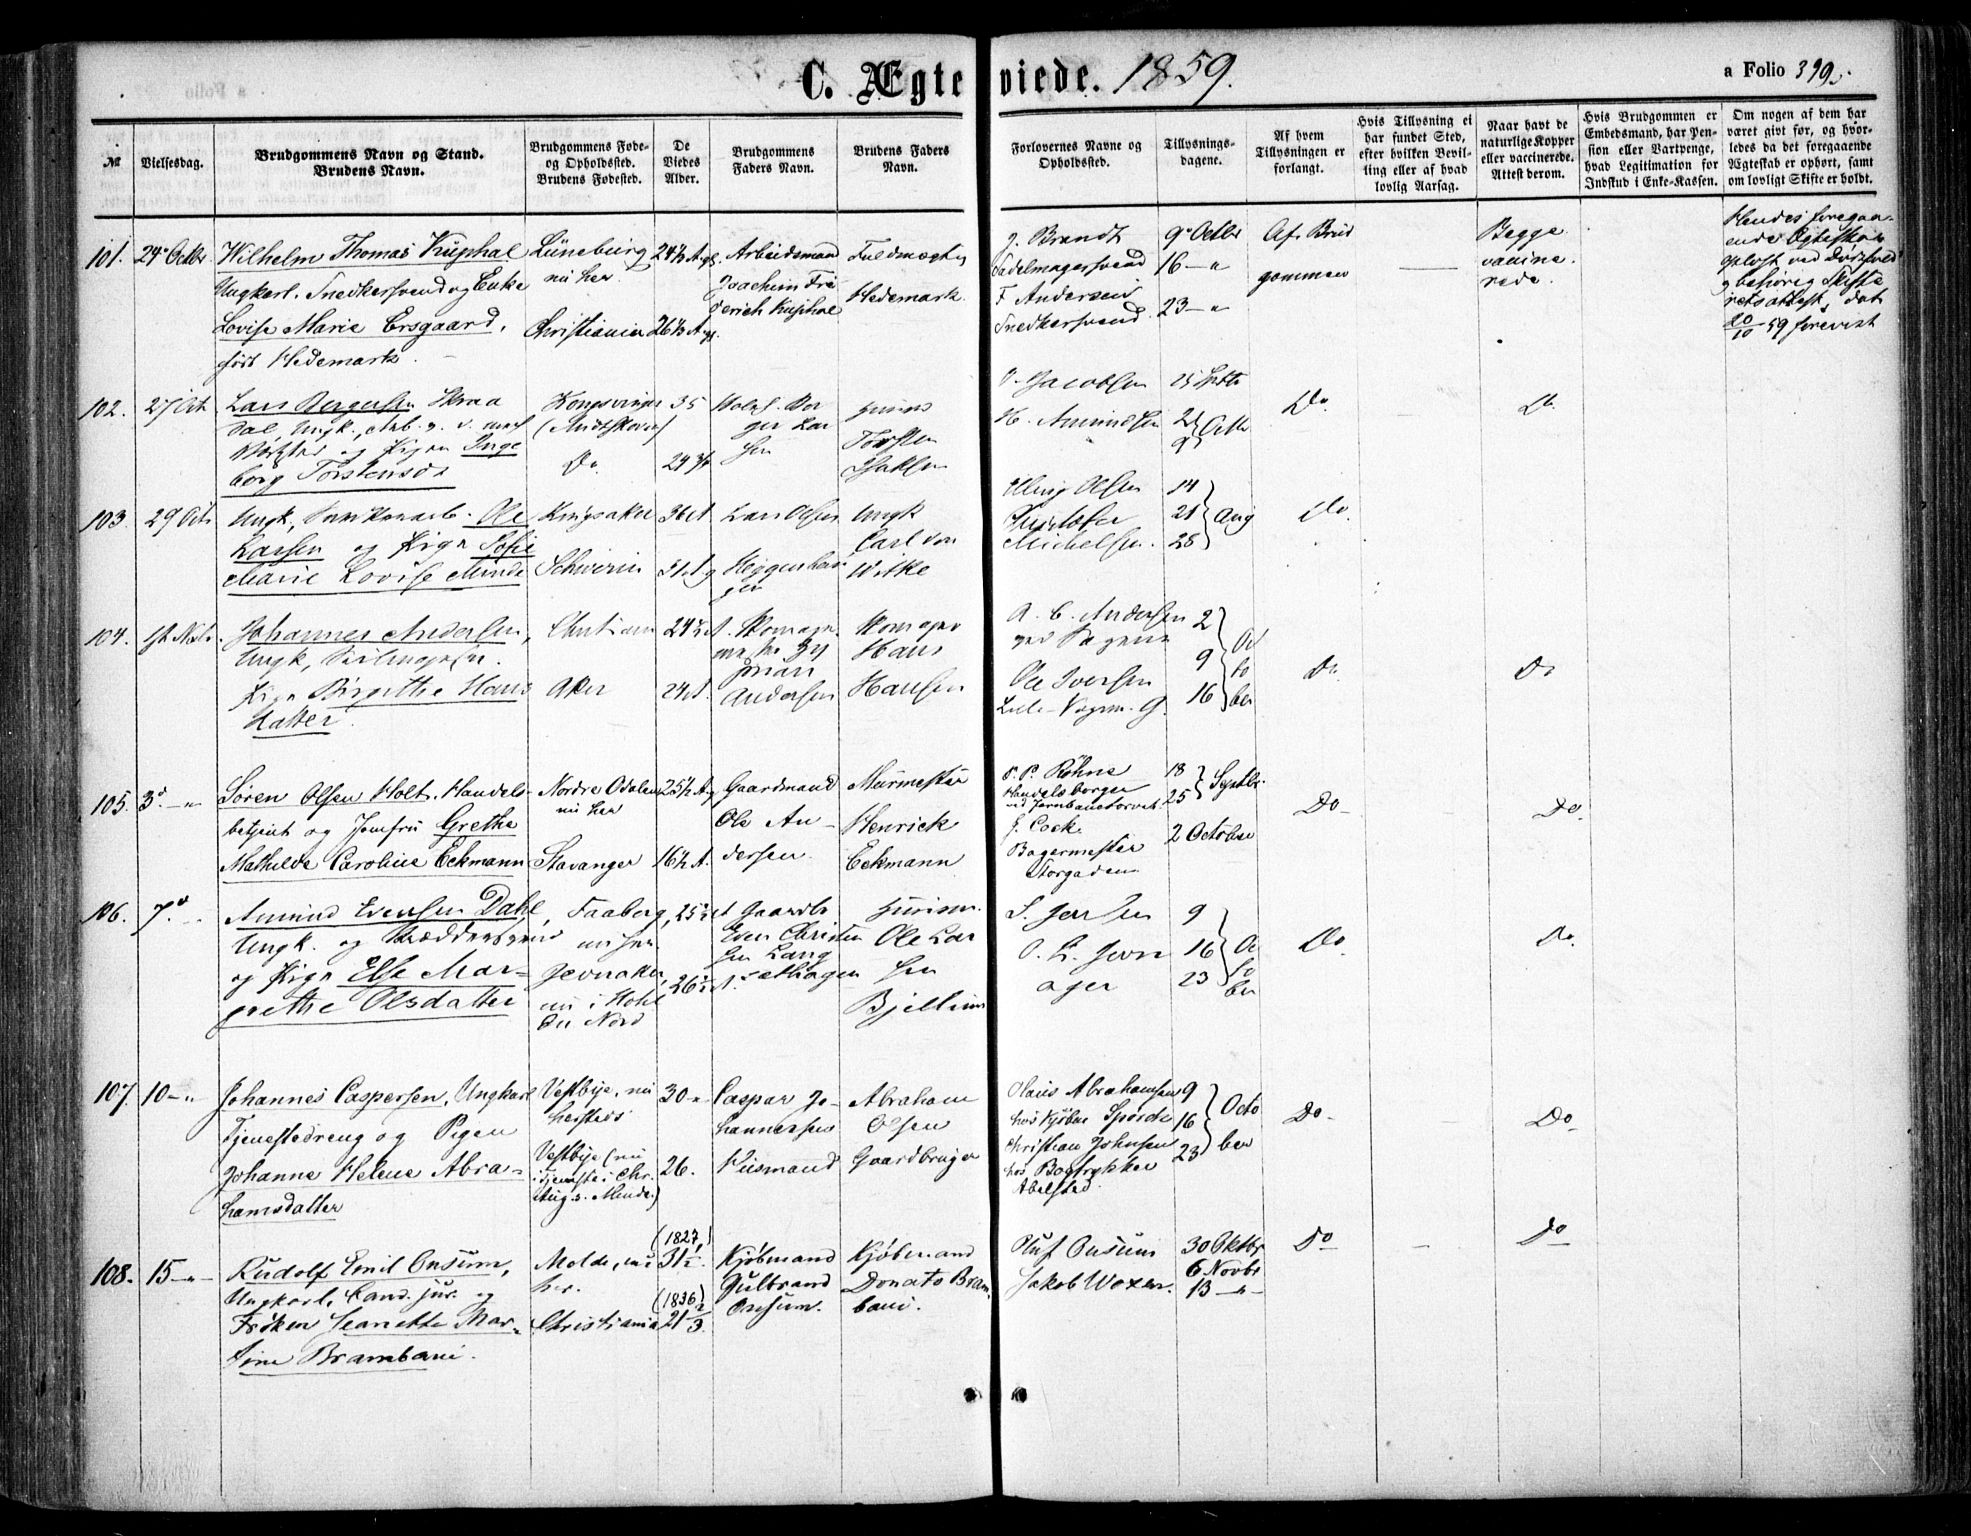 C. Ægteviede. 1859.
a Folio 399.
№
Vielsesdag.
Brudgommens Navn og Stand.
Brudens Navn.
Brudgommens Føde-
og Opholdssted.
Brudens Fødested.
De
Viedes
Alder.
Brudgommens
Faders Navn.
Brudens Faders
Navn.
Forlovernes Navne og
Opholdssted.
Tillysnings-
dagene.
Af hvem
Tillysningen er
forlangt.
Hvis Tillysning ei
har fundet Sted,
efter hvilken Bevil-
ling eller af hvad
lovlig Aarsag.
Naar havt de
naturlige Kopper
eller vaccinerede.
Attest derom.
Hvis Brudgommen er
Embedsmand, har Pen-
sion eller Vartpenge,
hvad Legitimation for
Indskud i Enke-Kassen.
Om nogen af dem har
været givt før, og hvor-
ledes da det foregaaende
Ægteskab er ophørt, samt
om lovligt Skifte er holdt.
101. 24de Octbr.
Wilhelm Thomas Kuphal
Ungkarl, Snedkersvend og Enke
Lovise Marie Ersgaard,
født Hedemark.
Lüneburg
nu her
Christiania
24½ A.
26½ A.
Arbeidsmand
Joachim Fri-
derich Kuphal
Fuldmægtig
Hedemark.
J. Brandt
Sadelmagersvend
F. Andersen
Snedkersvend.
9de Octbr
16 - "
23 - "
Af Brud
gommen
Begge
vaccine
rede.
Hendes foregaa-
ende Ægteskab
opløst ved Dødsfald
og behørig Skifte
rets attest, dat
20/10 59 forevist
102. 27 Oct.
Lars Bergersen Skraa
dal, Ungk., Arb.
og Pigen Inge
borg Torstensdr
Kongsvinger
Do.
35
24 ¾
Ber
ger Lar
sen
Torsten
Isaksen
Jacobsen
H. Amundsen
25 Septbr
2
9 } Octbr
Do.
Do.
103. 29 Oct.
Ungk, Ole
Larsen og Pige Sofie
Marie Lovise Minde
Ringsaker
Schwerin
36 A
31 A
Lars Olsen
Ungk
Carl von
Witke
Elling Olsen
Michelsen.
14
21 } Aug
28
Do.
104. 1st Novbr.
Johannes Andersen,
Ungk,
Pige Birgitthe Hans
datter.
Christiania
Aker
24½ A.
24 A.
Skomager
Andersen
Skomager
Hans
Hansen
A. C. Andersen
Ole Iversen
2
9
16 } Octo ber
Do.
Do
105. 3d - "
Søren Olsen Holt, Handels-
betjent og Jomfru Grethe
Mathilde Caroline Eckmann
Nordre Odalen
nu her
Stavanger
25½ A.
16½ A.
Gaardmand
Ole An-
dersen
Murmester
Henrick
Eckmann
P. P. Røhne
Handelsborger
ved Jernbanetorvet.
J. Cock
Bagermester
Storgaden
18
25 } Septbr.
2 October
Do-
Do.
106. 7d - "
Amund Evensen Dahl,
Ungk. og Skræddersvend
og Pige Else Mar-
grethe Olsdatter
Faaberg,
nu her.
Jevnaker,
nu i Hol
25½ A
26½ A.
Gaardbr
Even Christen
sen Lang
sethagen
Husmm.
Ole Lar
sen
Bjellum
9
16
23 } Octo ber
Do.
Do.
107. 10 - "
Johannes Caspersen, Ungkarl
Tjenestedreng og Pigen
Johanne Helene Abra-
hamsdatter
Vestbye, nu
hersteds
Vestbye (nu
i Tjeneste i Chr.
30 - "
26.
Caspar Jo-
hannessen
Husmand
Abraham
Olsen
Gaardbruger
Olaus Abrahamsen
hos Kjøbm. Spørck
Christian Johnsen
hos Bogtrykker
Abelsted.
9
16
23 } Octo ber
Do-
Do-
108. 15 - "
Rudolf Emil Onsum,
Ungkarl, Cand. jur. og
Frøken Jeanette Mar-
tine Brambani.
Molde, nu
her.
Christiania
(1827,)
31½.
(1836)
21 2/3.
Kjøbmand
Gulbrand
Onsum.
Kjøbmand
Donato Bram-
bani.
Oluf Onsum
Jakob Woxen.
30 Oktbr
6 Novbr
13 - "
Do
Do